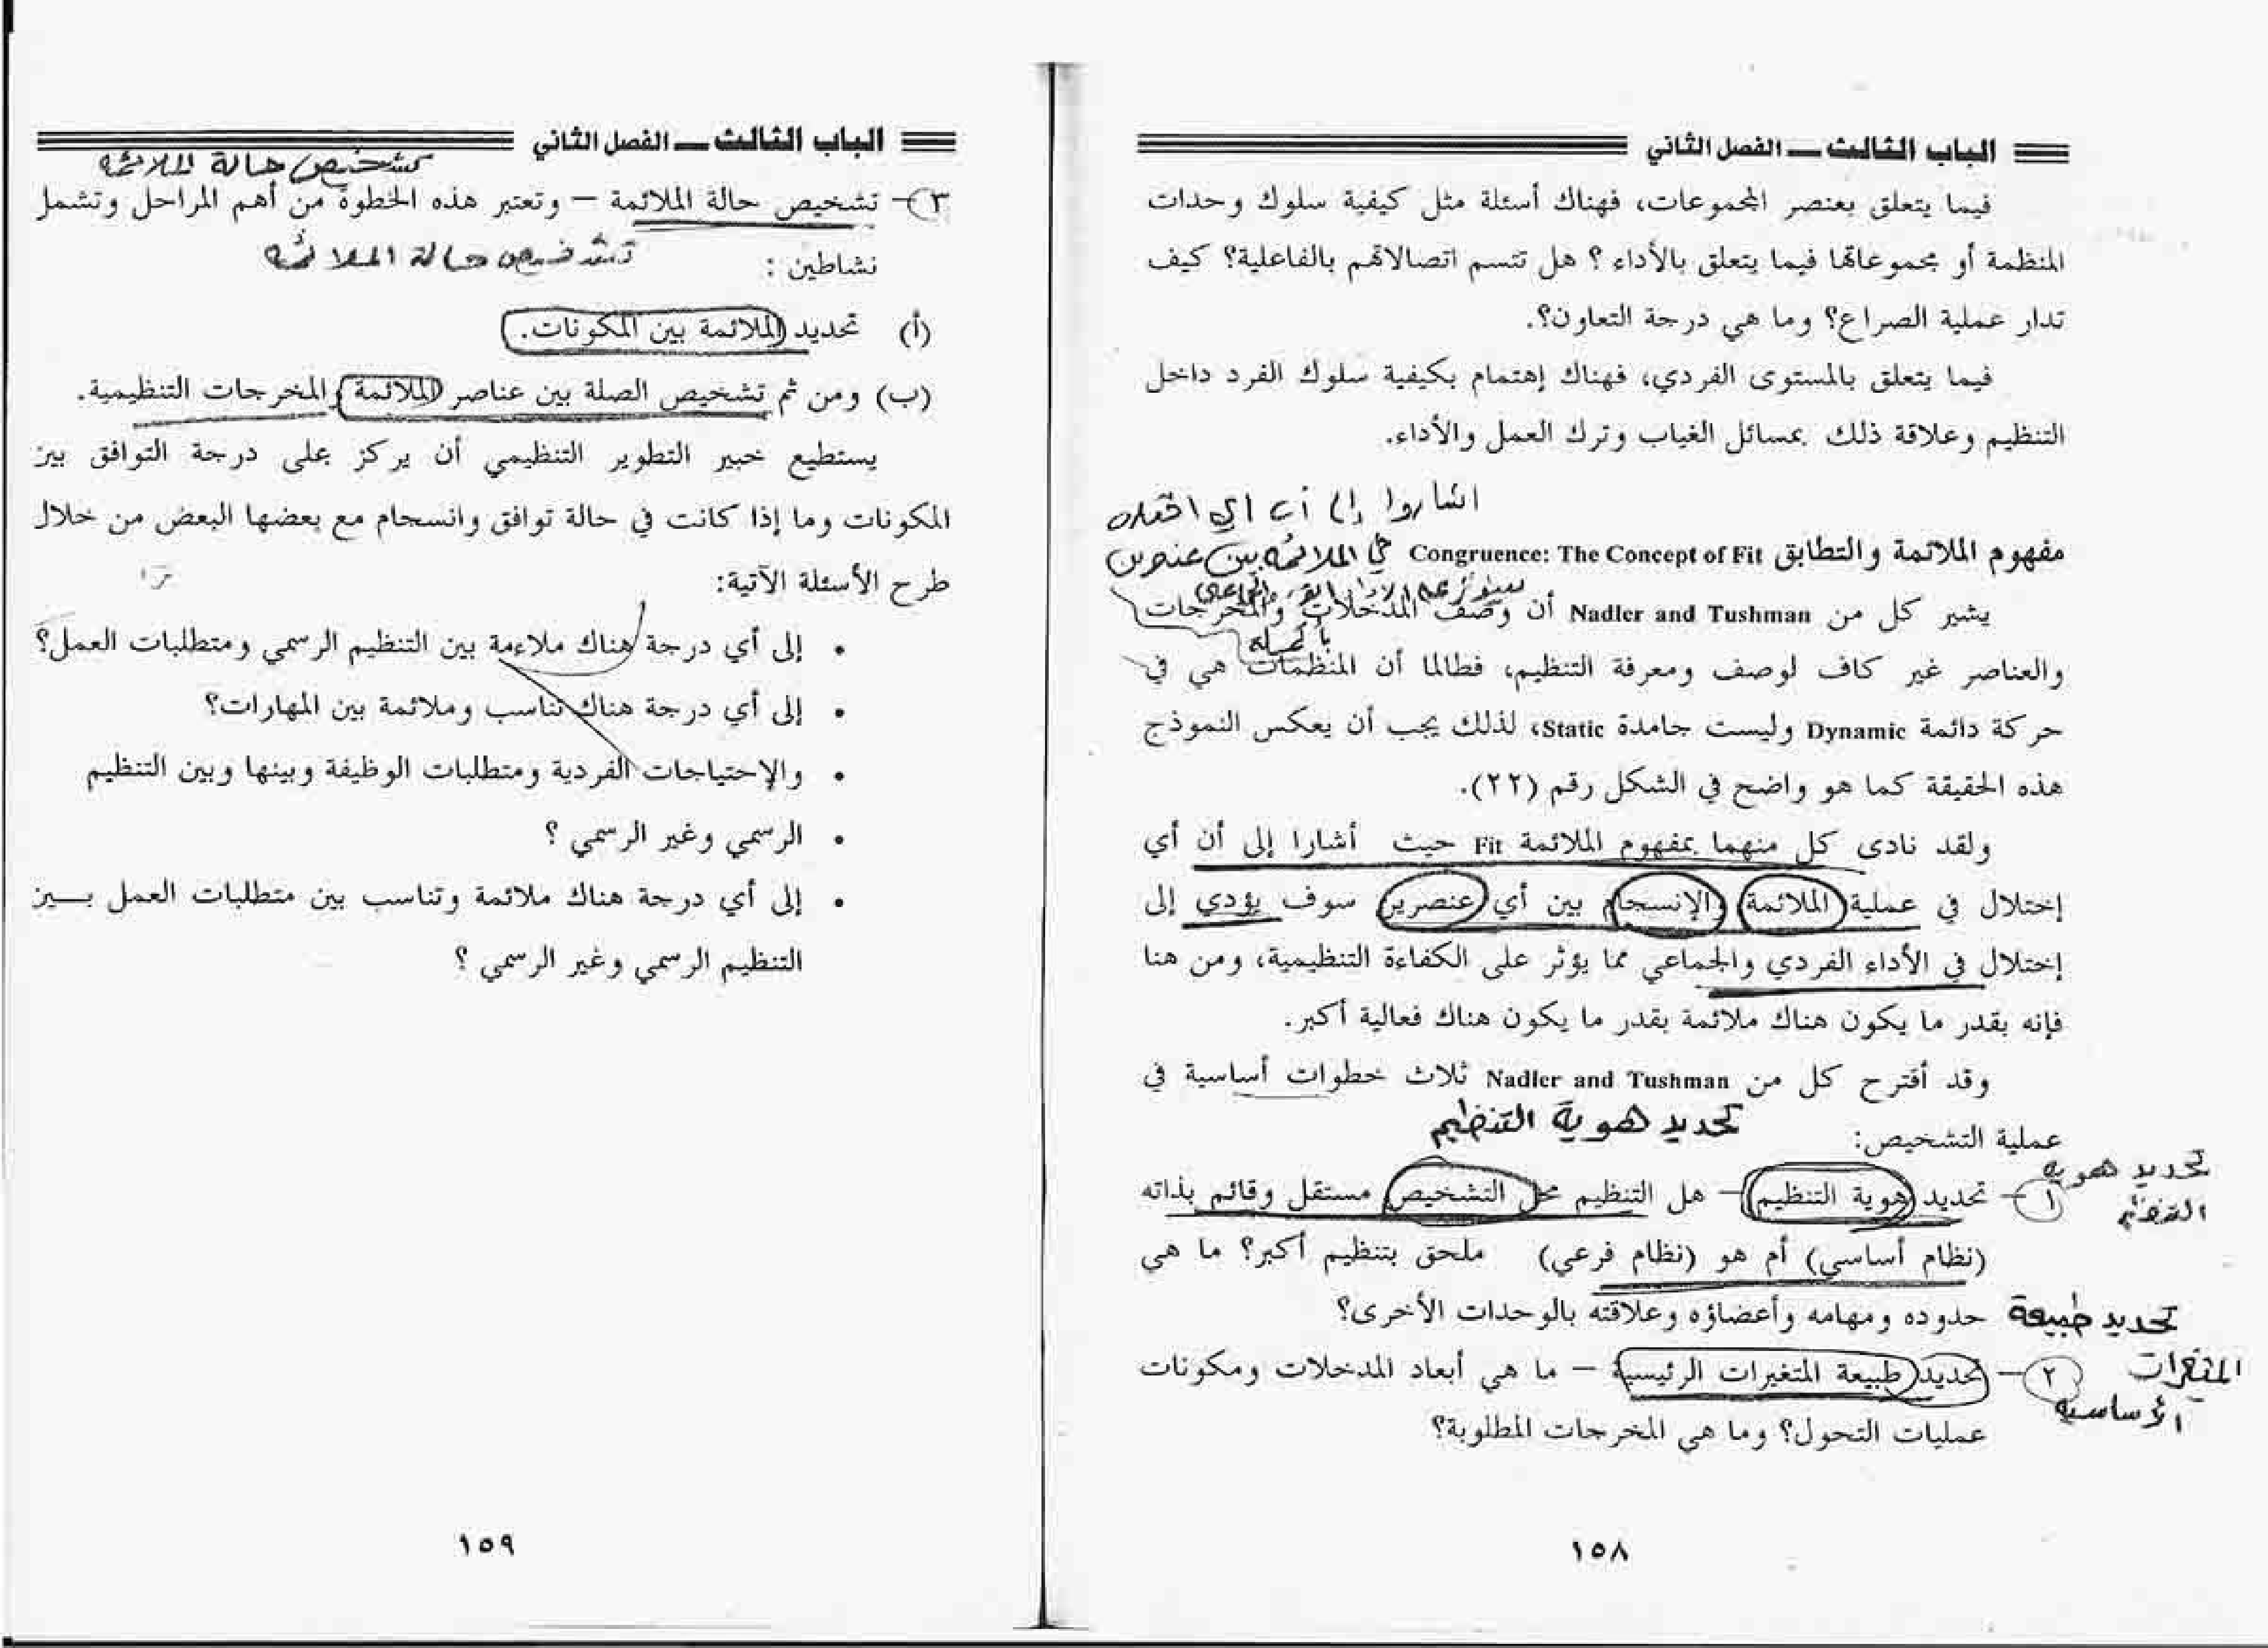 الباب الثالث ــ الفصل الثاني
فيما يتعلق بعنصر المجموعات، فهناك أسئلة مثل كيفية سلوك وحدات
المنظمة أو مجموعاتها فيما يتعلق بالأداء ؟ هل تتسم اتصالاتهم بالفاعلية؟ كيف
تدار عملية الصراع؟ وما هي درجة التعاون؟.
فيما يتعلق بالمستوى الفردي، فهناك إهتمام بكيفية سلوك الفرد داخل
التنظيم وعلاقة ذلك بمسائل الغياب وترك العمل والأداء.
اشاروا إلى أن اي
مفهوم الملائمة والتطابق Congruence: The Concept of Fit في الملائمة بين عنصرين
يشير كل من Nadler and Tushman أن وصف المدخلات والمخرجات
والعناصر غير كاف لوصف ومعرفة التنظيم، فطالما أن المنظمات هي في
حركة دائمة Dynamic وليست جامدة Static، لذلك يجب أن يعكس النموذج
هذه الحقيقة كما هو واضح في الشكل رقم (٢٢).
ولقد نادى كل منهما بمفهوم الملائمة Fit حيث أشارا إلى أن أي
إختلال في عملية الملائمة والإنسجام بين أي عنصرين سوف يؤدي إلى
إختلال في الأداء الفردي والجماعي مما يؤثر على الكفاءة التنظيمية، ومن هنا
فإنه بقدر ما يكون هناك ملائمة بقدر ما يكون هناك فعالية أكبر.
وقد أقترح كل من Nadler and Tushman ثلاث خطوات أساسية في
تحديد هوية التنظيم
عملية التشخيص:
تحديد هوية
التنظيم
١- تحديد هوية التنظيم – هل التنظيم محل التشخيص مستقل وقائم بذاته
(نظام أساسي) أم هو (نظام فرعي) ملحق بتنظيم أكبر؟ ما هي
حدوده ومهامه وأعضاؤه وعلاقته بالوحدات الأخرى؟
تحديد طبيعة
المتغيرات
الأساسية
٢- تحديد طبيعة المتغيرات الرئيسية – ما هي أبعاد المدخلات ومكونات
عمليات التحول؟ وما هي المخرجات المطلوبة؟
١٥٨
الباب الثالث ــ الفصل الثاني
تشخيص حالة الملائمة
٣- تشخيص حالة الملائمة – وتعتبر هذه الخطوة من أهم المراحل وتشمل
نشاطين :
تشخيص حالة الملائمة
(أ) تحديد الملائمة بين المكونات.
(ب) ومن ثم تشخيص الصلة بين عناصر الملائمة والمخرجات التنظيمية.
يستطيع خبير التطوير التنظيمي أن يركز على درجة التوافق بين
المكونات وما إذا كانت في حالة توافق وانسجام مع بعضها البعض من خلال
طرح الأسئلة الآتية:
• إلى أي درجة هناك ملاءمة بين التنظيم الرسمي ومتطلبات العمل؟
• إلى أي درجة هناك تناسب وملائمة بين المهارات؟
• والإحتياجات الفردية ومتطلبات الوظيفة وبينها وبين التنظيم
• الرسمي وغير الرسمي ؟
• إلى أي درجة هناك ملائمة وتناسب بين متطلبات العمل بــين
التنظيم الرسمي وغير الرسمي ؟
١٥٩